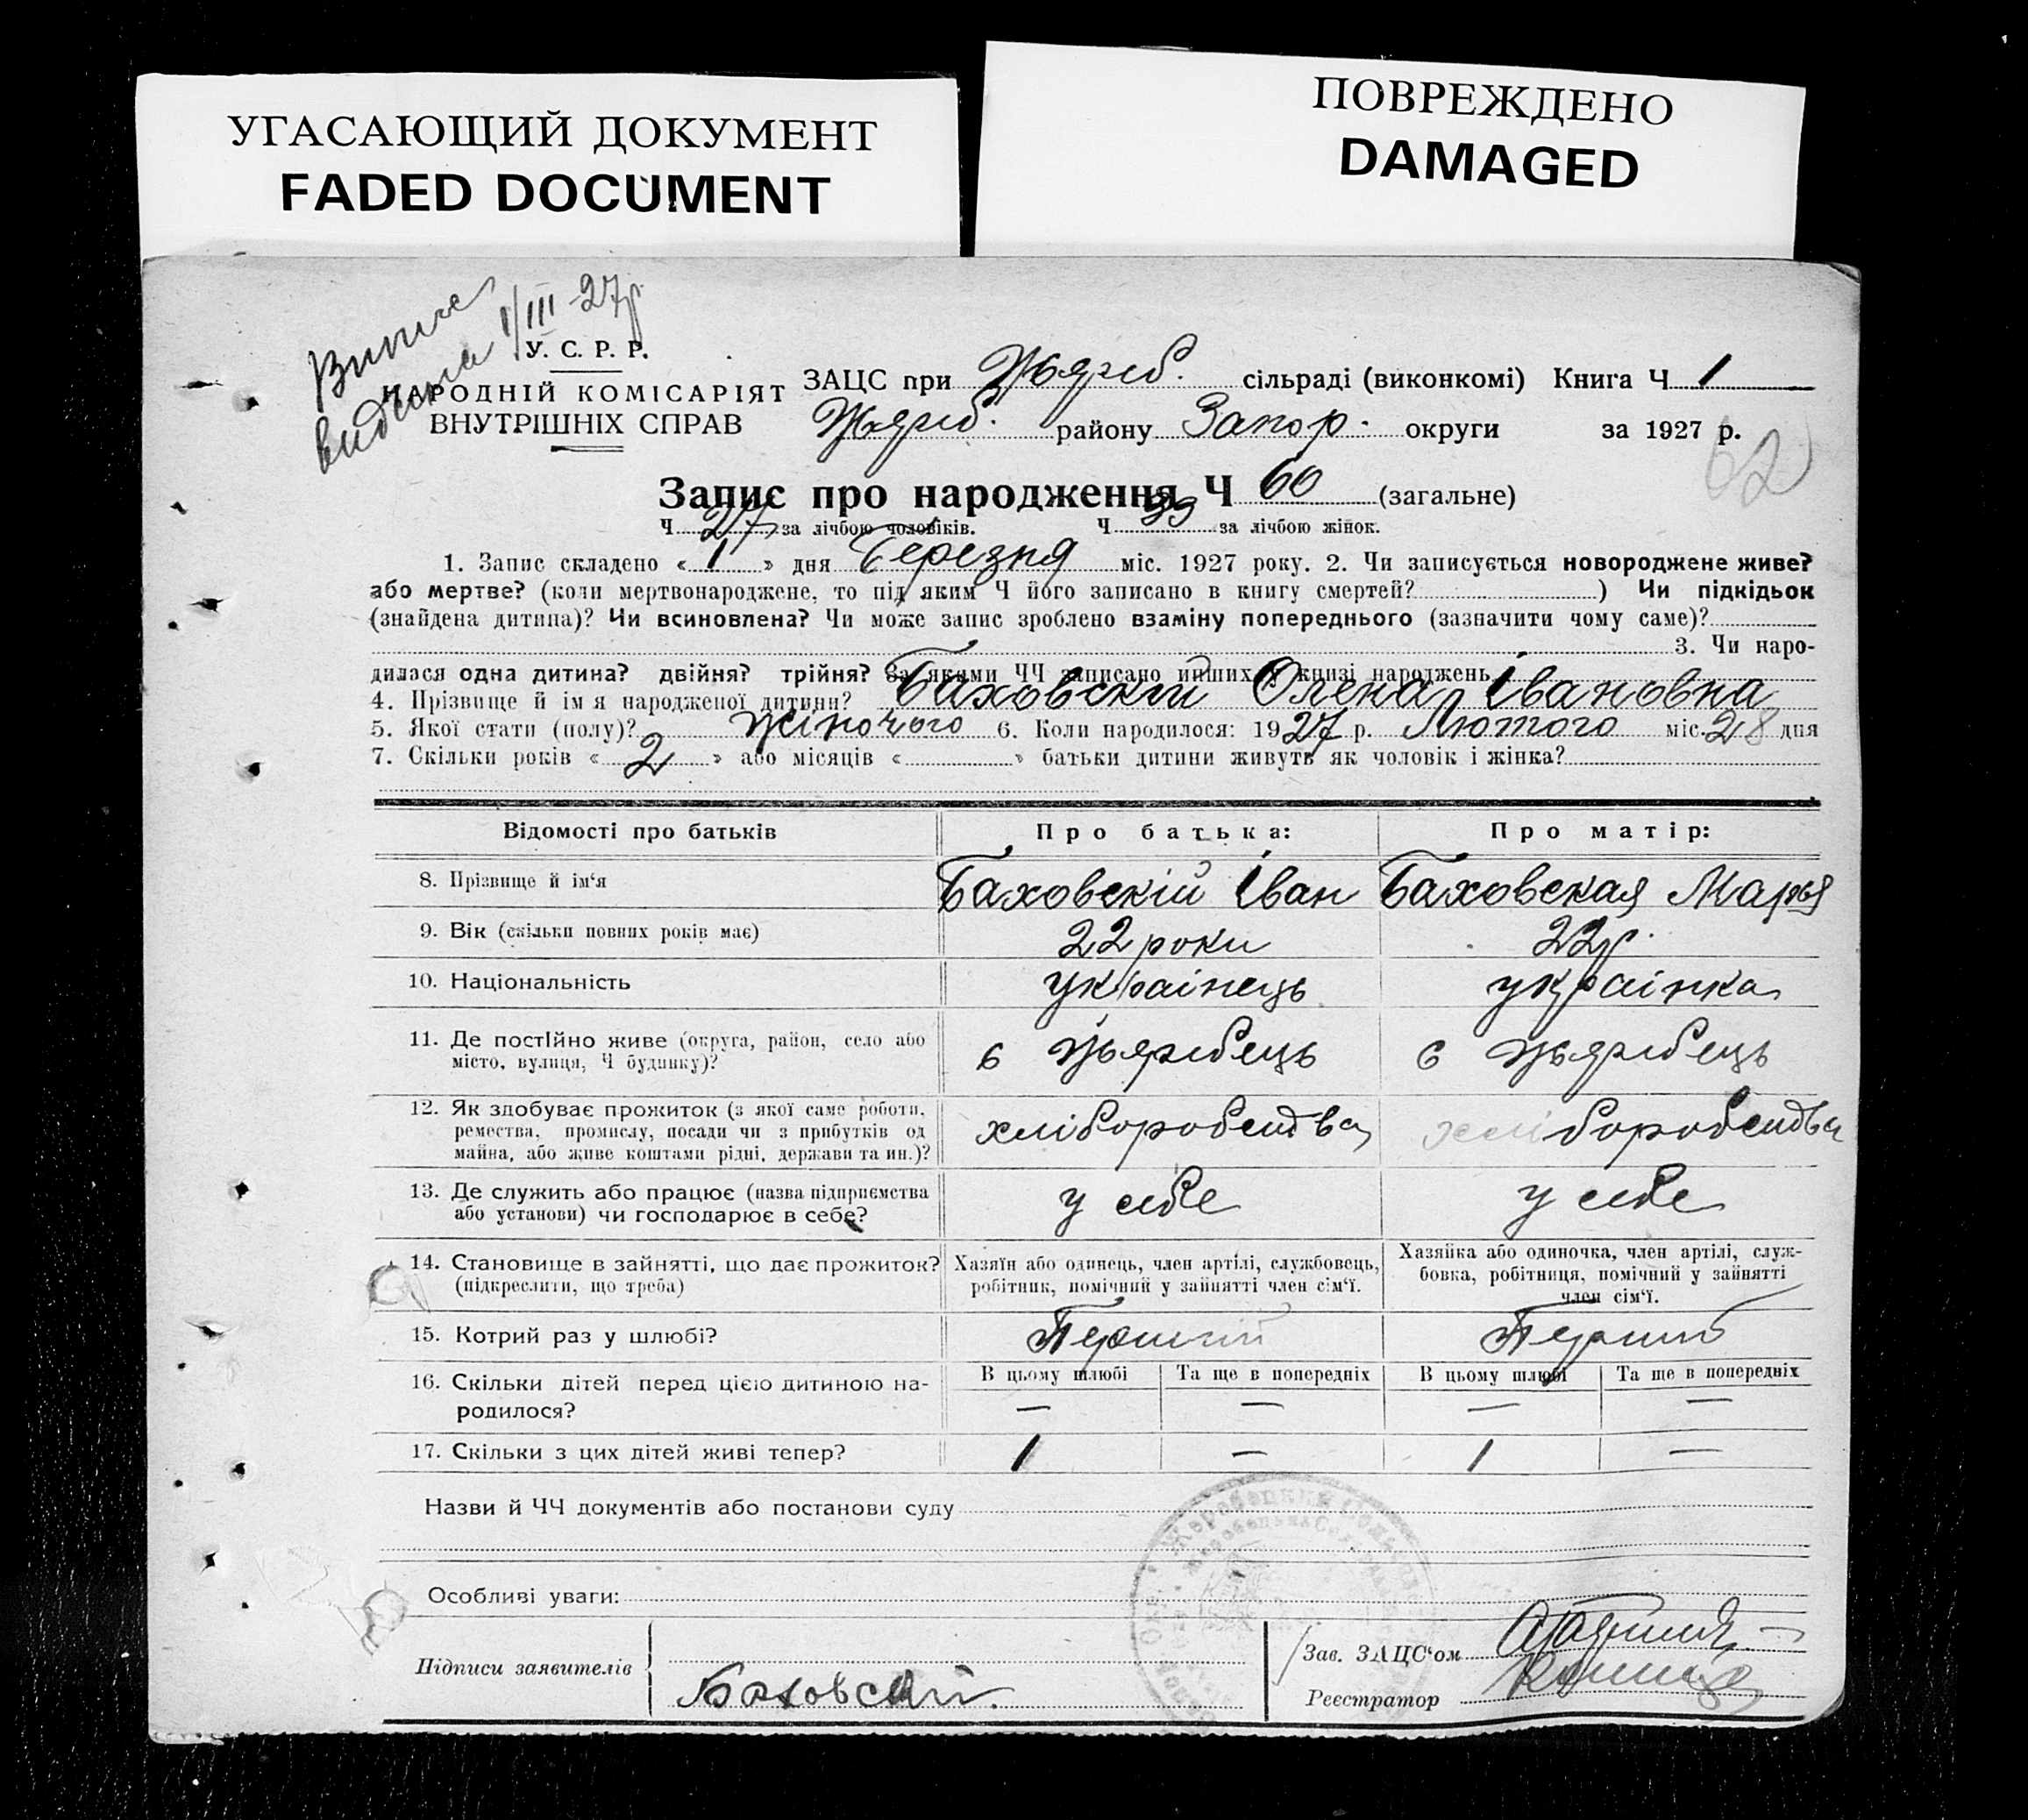 УГАСАЮЩИЙ ДОКУМЕНТ
FADED DOCUMENT
ПОВРЕЖДЕНО
DAMAGED
Випис
видана 1/III-27р.
У. С. Р. Р.
НАРОДНІЙ КОМІСАРІЯТ
ВНУТРІШНІХ СПРАВ
ЗАЦС при сільраді (виконкомі) Книга Ч 1
району Запор. округи за 1927 р.
62
Запис про народження Ч 60 (загальне)
Ч 27 за лічбою чоловіків. Ч 33 за лічбою жінок.
1. Запис складено « 1 » дня Березня міс. 1927 року. 2. Чи записується новороджене живе?
або мертве? (коли мертвонароджене, то під яким Ч його записано в книгу смертей? ) Чи підкідьок
(знайдена дитина)? Чи всиновлена? Чи може запис зроблено взаміну попереднього (зазначити чому саме)?
3. Чи наро-
дилася одна дитина? двійня? трійня? За якими ЧЧ записано инших у книзі народжень
4. Прізвище й ім я народженої дитини? Баховскій Олена Івановна
5. Якої стати (полу)? жіночого 6. Коли народилося: 1927 р. Лютого міс. 28 дня
7. Скільки років « 2 » або місяців « » батьки дитини живуть як чоловік і жінка?
Відомості про батьків Про батька: Про матір:
8. Прізвище й ім‘я Баховскій Іван Баховская Марья
9. Вік (скільки повних років має) 22 роки 22 р.
10. Національність українець українка
11. Де постійно живе (округа, район, село або
місто, вулиця, Ч будинку)?
12. Як здобуває прожиток (з якої саме роботи,
ремества, промислу, посади чи з прибутків од
майна, або живе коштами рідні, держави та ин.)?
хліборобендва хліборобендва
13. Де служить або працює (назва підприємства
або установи) чи господарює в себе?
у себе у себе
14. Становище в зайнятті, що дає прожиток?
(підкреслити, що треба)
Хазяїн або одинець, член артілі, службовець,
робітник, помічний у зайнятті член сім‘ї.
Хазяйка або одиночка, член артілі, служ-
бовка, робітниця, помічний у зайнятті
член сім‘ї.
15. Котрий раз у шлюбі? Перший Перший
16. Скільки дітей перед цією дитиною на-
родилося?
В цьому шлюбі Та ще в попередніх В цьому шлюбі Та ще в попередніх
— — — —
17. Скільки з цих дітей живі тепер? 1 — 1 —
Назви й ЧЧ документів або постанови суду
Особливі уваги:
Підписи заявителів Баховский.
Зав. ЗАЦС‘ом
Реєстратор